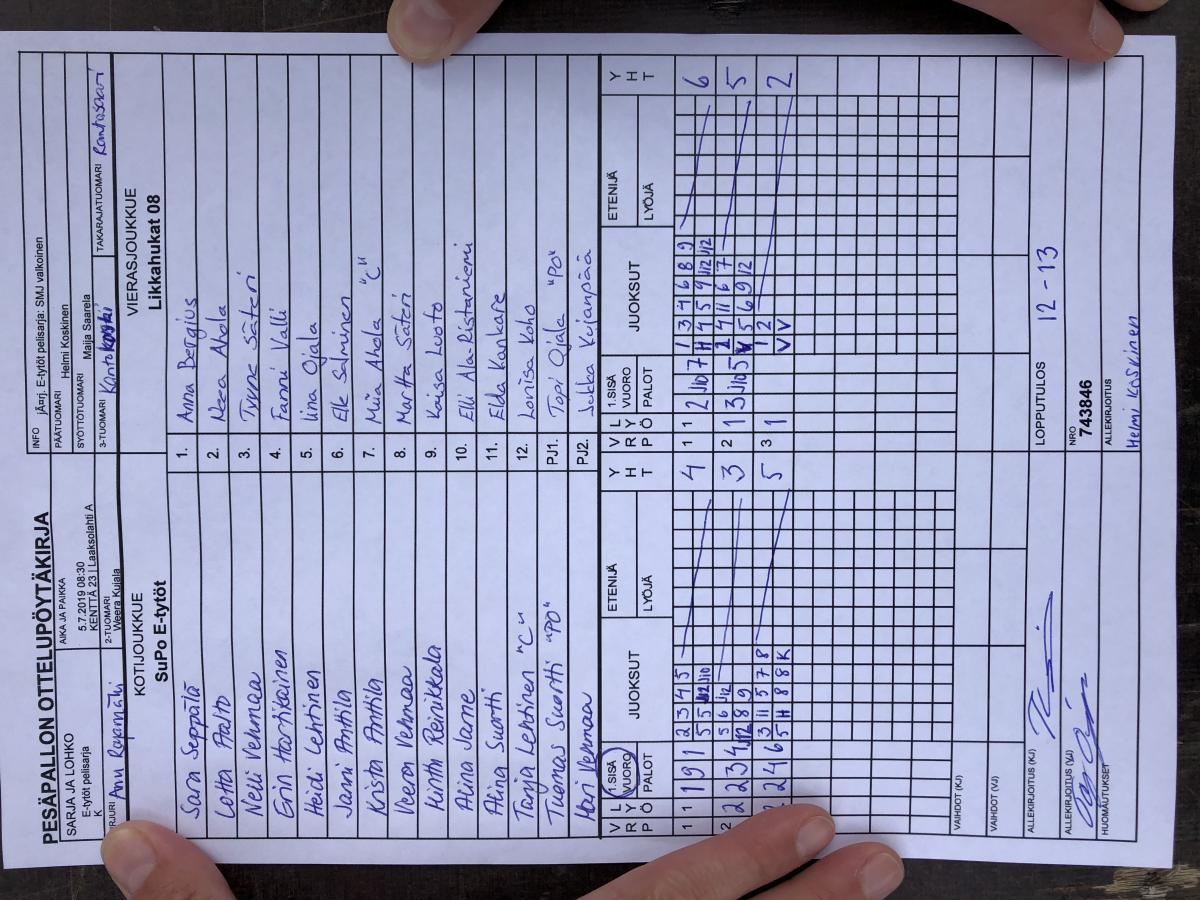 PESÄPALLON OTTELUPÖYTÄKIRJA
SARJA JA LOHKO
E-tytöt pelisarja
K
AIKA JA PAIKKA
5.7.2019 08:30
KENTTÄ 23 | Laaksolahti A
INFO jÄ¤rj. E-tytöt pelisarja: SMJ valkoinen
PÄÄTUOMARI Helmi Koskinen
SYÖTTÖTUOMARI Maija Saarela
RJURI Anu Rajamäki
2-TUOMARI
Weera Kujala
3-TUOMARI
TAKARAJATUOMARI Rantasaari
KOTIJOUKKUE
SuPo E-tytöt
VIERASJOUKKUE
Likkahukat 08
Sara Seppälä 1. Anna Bergius
Lotta Aalto 2. Neea Ahola
Nelli Vehmaa 3. Tyyne Säteri
Erin Hartikainen 4. Fanni Valli
Heidi Lehtinen 5. Iina Ojala
Janni Anttila 6. Elle Salminen
Krista Anttila 7. Miia Ahola "C"
Veera Vehmaa 8. Martta Säteri
Hirttu Reinikkala 9. Kaisa Luoto
Aina Jarne 10. Elli Ala-Ristaniemi
Aina Suortti 11. Elda Kankare
Tanja Lehtinen "C" 12. Loviisa Koho
Tuomas Suortti "PO" PJ1. Topi Ojala "PO"
Mari Vehmaa PJ2. Jukka Kujanpää
V L
R Y
P Ö
1.SISÄ
VUORO
PALOT
JUOKSUT
ETENIJÄ
LYÖJÄ
Y
H
T
V L
R Y
P Ö
1.SISÄ
VUORO
PALOT
JUOKSUT
ETENIJÄ
LYÖJÄ
Y
H
T
1 1 1 9 1 2 3 4 5 4 1 1 2 J10 7 1 3 4 6 8 9 6
5 5 J12 J10 H 4 5 9 J12 J12
2 2 2 3 4 5 6 J12 3 2 1 3 J10 5 2 4 11 6 7 5
J12 8 9 5 6 9 12
2 2 4 6 3 11 5 7 8 5 3 1 1 2 2
5 H 8 8 K V V
VAIHDOT (KJ)
VAIHDOT (VJ)
ALLEKIRJOITUS (KJ)
LOPPUTULOS 12 - 13
ALLEKIRJOITUS (VJ)
NRO
743846
HUOMAUTUKSET
ALLEKIRJOITUS
Helmi Koskinen